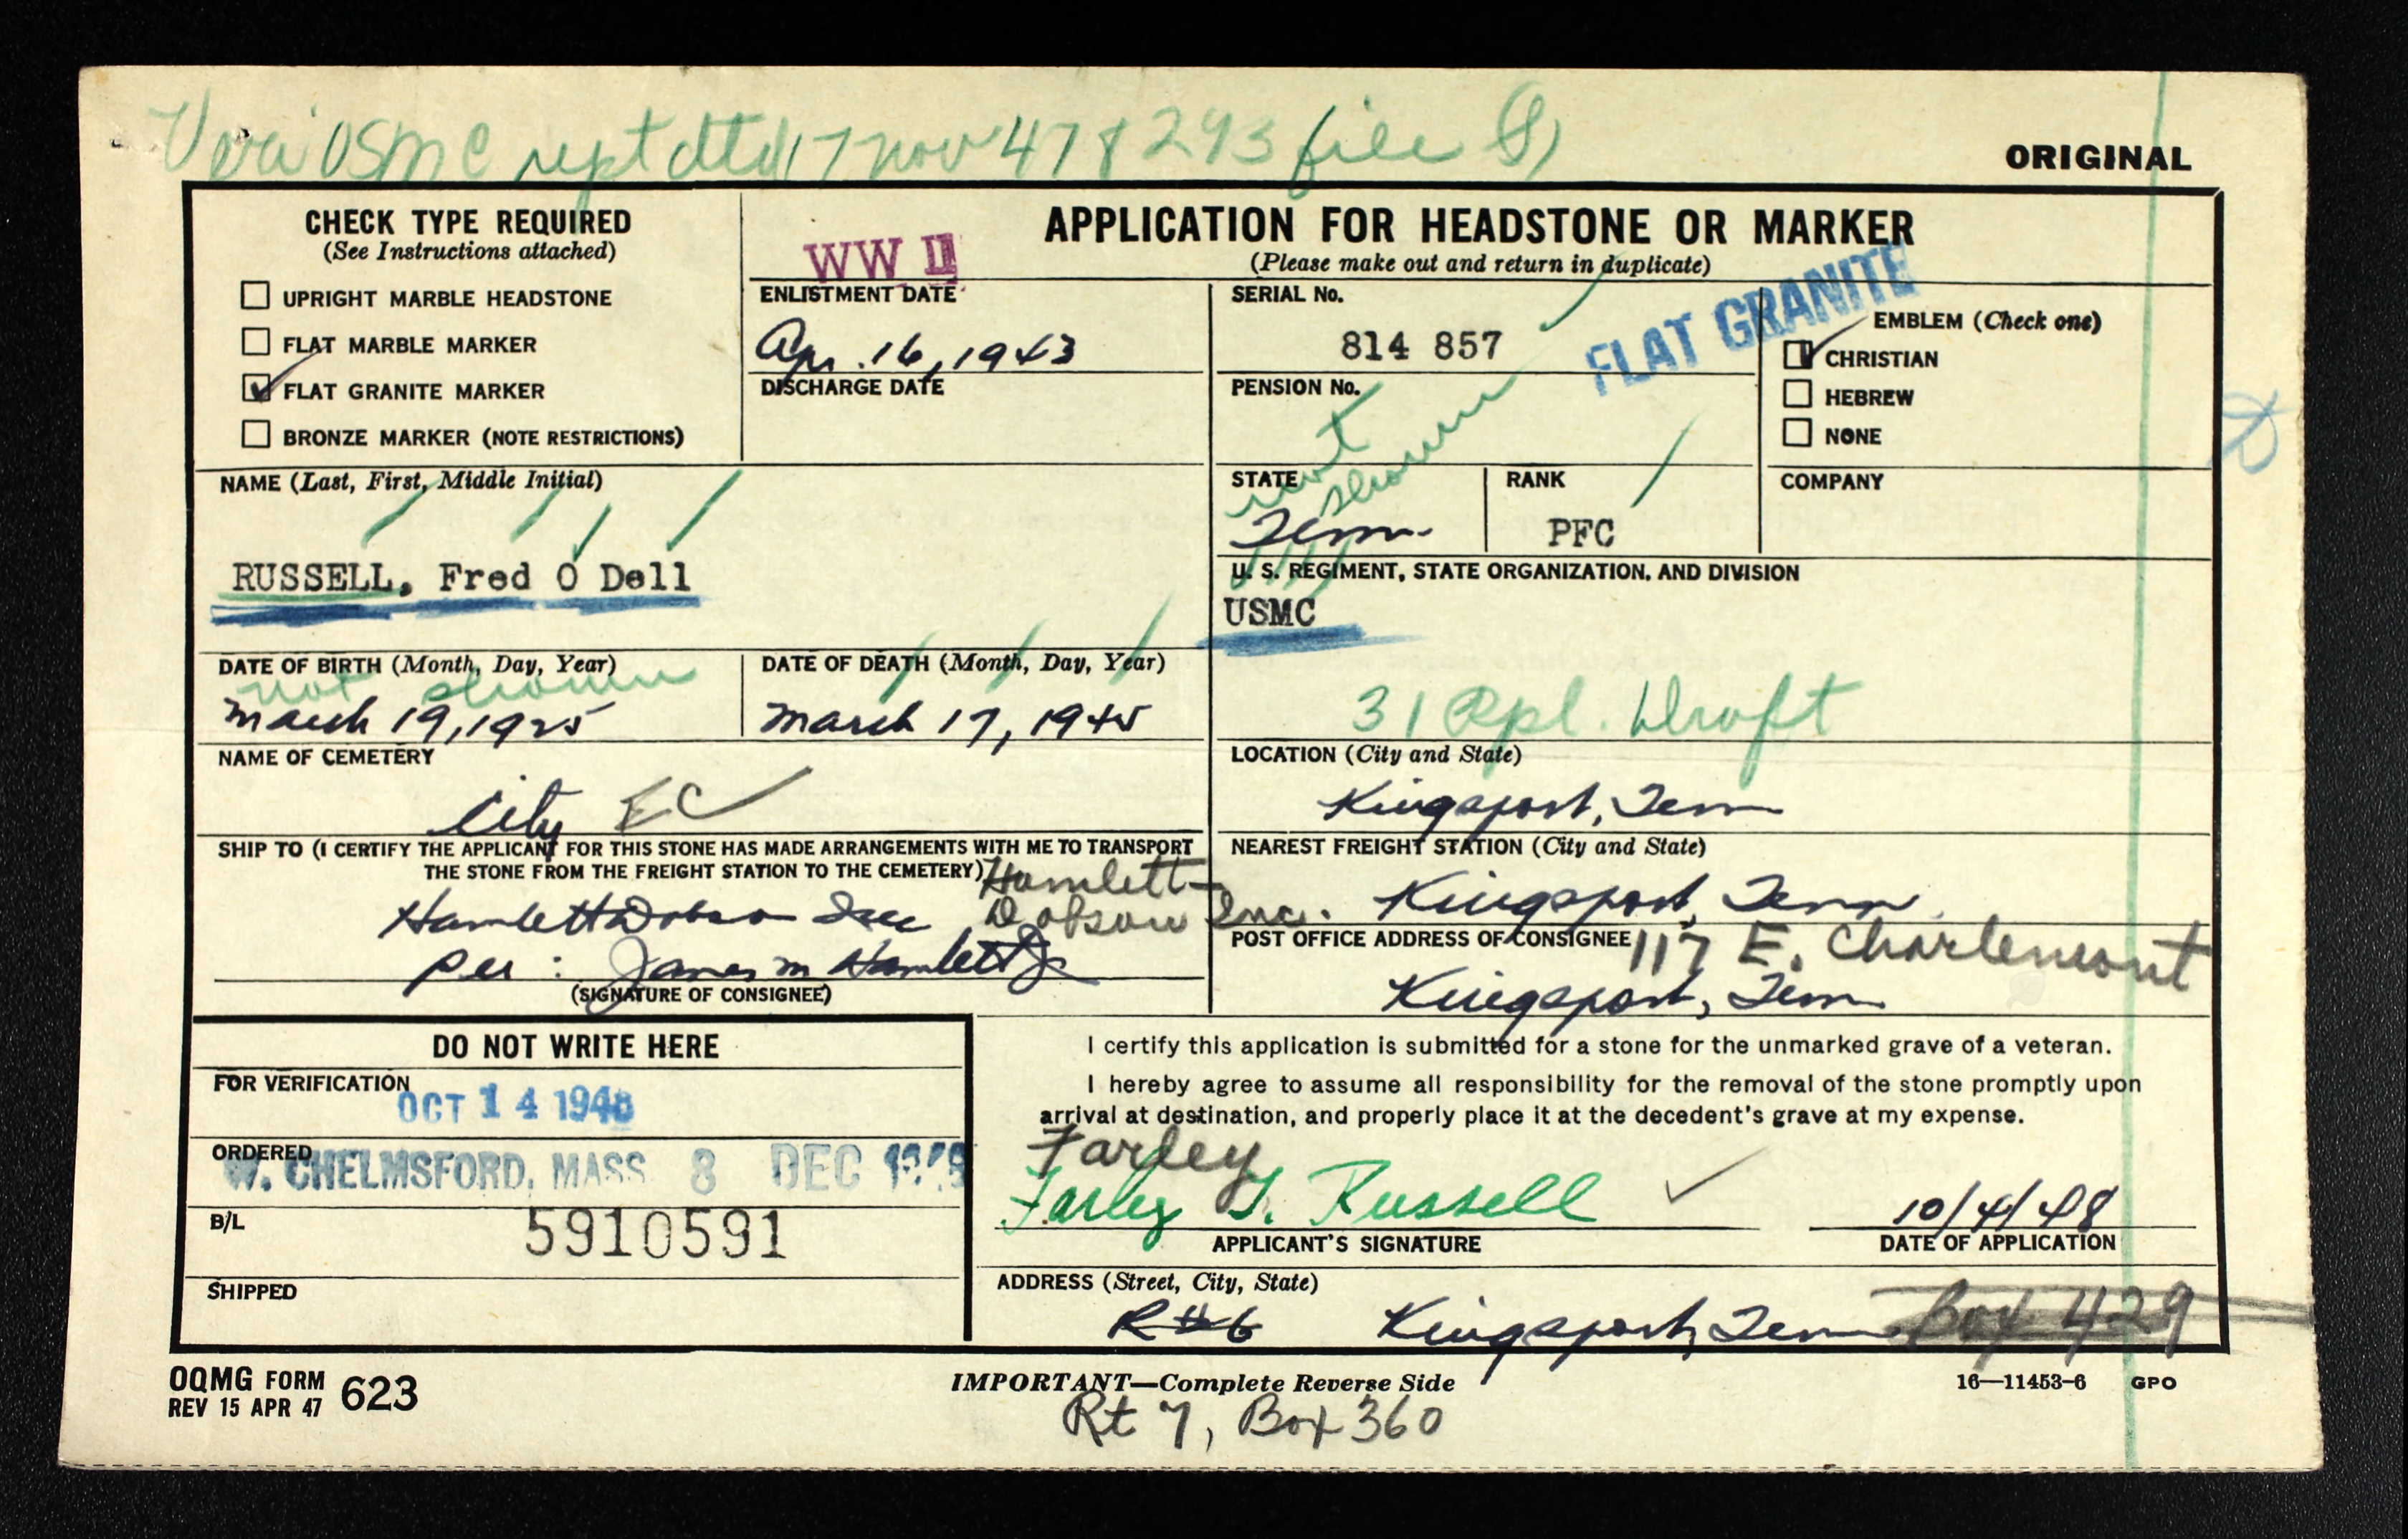 Veri USMC rept dtd 17 Nov 47 8293 file
ORIGINAL
CHECK TYPE REQUIRED
(See Instructions attached)
UPRIGHT MARBLE HEADSTONE
FLAT MARBLE MARKER
FLAT GRANITE MARKER
BRONZE MARKER (NOTE RESTRICTIONS)
WW II
APPLICATION FOR HEADSTONE OR MARKER
(Please make out and return in duplicate)
ENLISTMENT DATE
Apr. 16, 1943
DISCHARGE DATE
SERIAL No.
814 857
PENSION No.
FLAT GRANITE
EMBLEM (Check one)
CHRISTIAN
HEBREW
NONE
NAME (Last, First, Middle Initial)
RUSSELL, Fred O Dell
STATE
not shown
Tenn.
RANK
PFC
COMPANY
U. S. REGIMENT, STATE ORGANIZATION, AND DIVISION
USMC
31 Rpl. Draft
DATE OF BIRTH (Month, Day, Year)
not shown
March 19, 1925
DATE OF DEATH (Month, Day, Year)
March 17, 1945
NAME OF CEMETERY
City EC
LOCATION (City and State)
Kingsport, Tenn
SHIP TO (I CERTIFY THE APPLICANT FOR THIS STONE HAS MADE ARRANGEMENTS WITH ME TO TRANSPORT
THE STONE FROM THE FREIGHT STATION TO THE CEMETERY)
Hamlett-
Dobson Inc.
Hamlett Dobson Inc
per: James M Hamlett Jr
(SIGNATURE OF CONSIGNEE)
NEAREST FREIGHT STATION (City and State)
Kingsport, Tenn
POST OFFICE ADDRESS OF CONSIGNEE
117 E. Charlemont
Kingsport, Tenn
DO NOT WRITE HERE
FOR VERIFICATION
OCT 14 1948
ORDERED
W. CHELMSFORD, MASS 8 DEC 1948
B/L
5910591
SHIPPED
I certify this application is submitted for a stone for the unmarked grave of a veteran.
I hereby agree to assume all responsibility for the removal of the stone promptly upon
arrival at destination, and properly place it at the decedent's grave at my expense.
Farley
Farley T. Russell
10/4/48
APPLICANT'S SIGNATURE
DATE OF APPLICATION
ADDRESS (Street, City, State)
R#6 Kingsport, Tenn Box 429
OQMG FORM 623
REV 15 APR 47
IMPORTANT—Complete Reverse Side
16—11453-6 GPO
Rt 7, Box 360